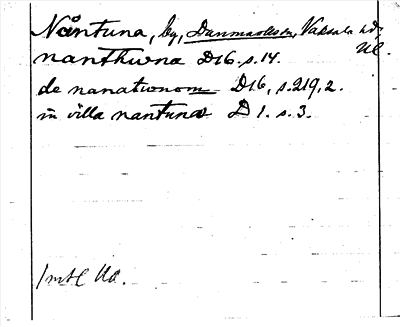 Nåntuna, by, Danmarks sn, Vaksala hd, Ul.
nanthuna D16. s. 14.
de nanationom D16, s. 219, 2.
in villa nantuna D 1. s. 3.
Ul.